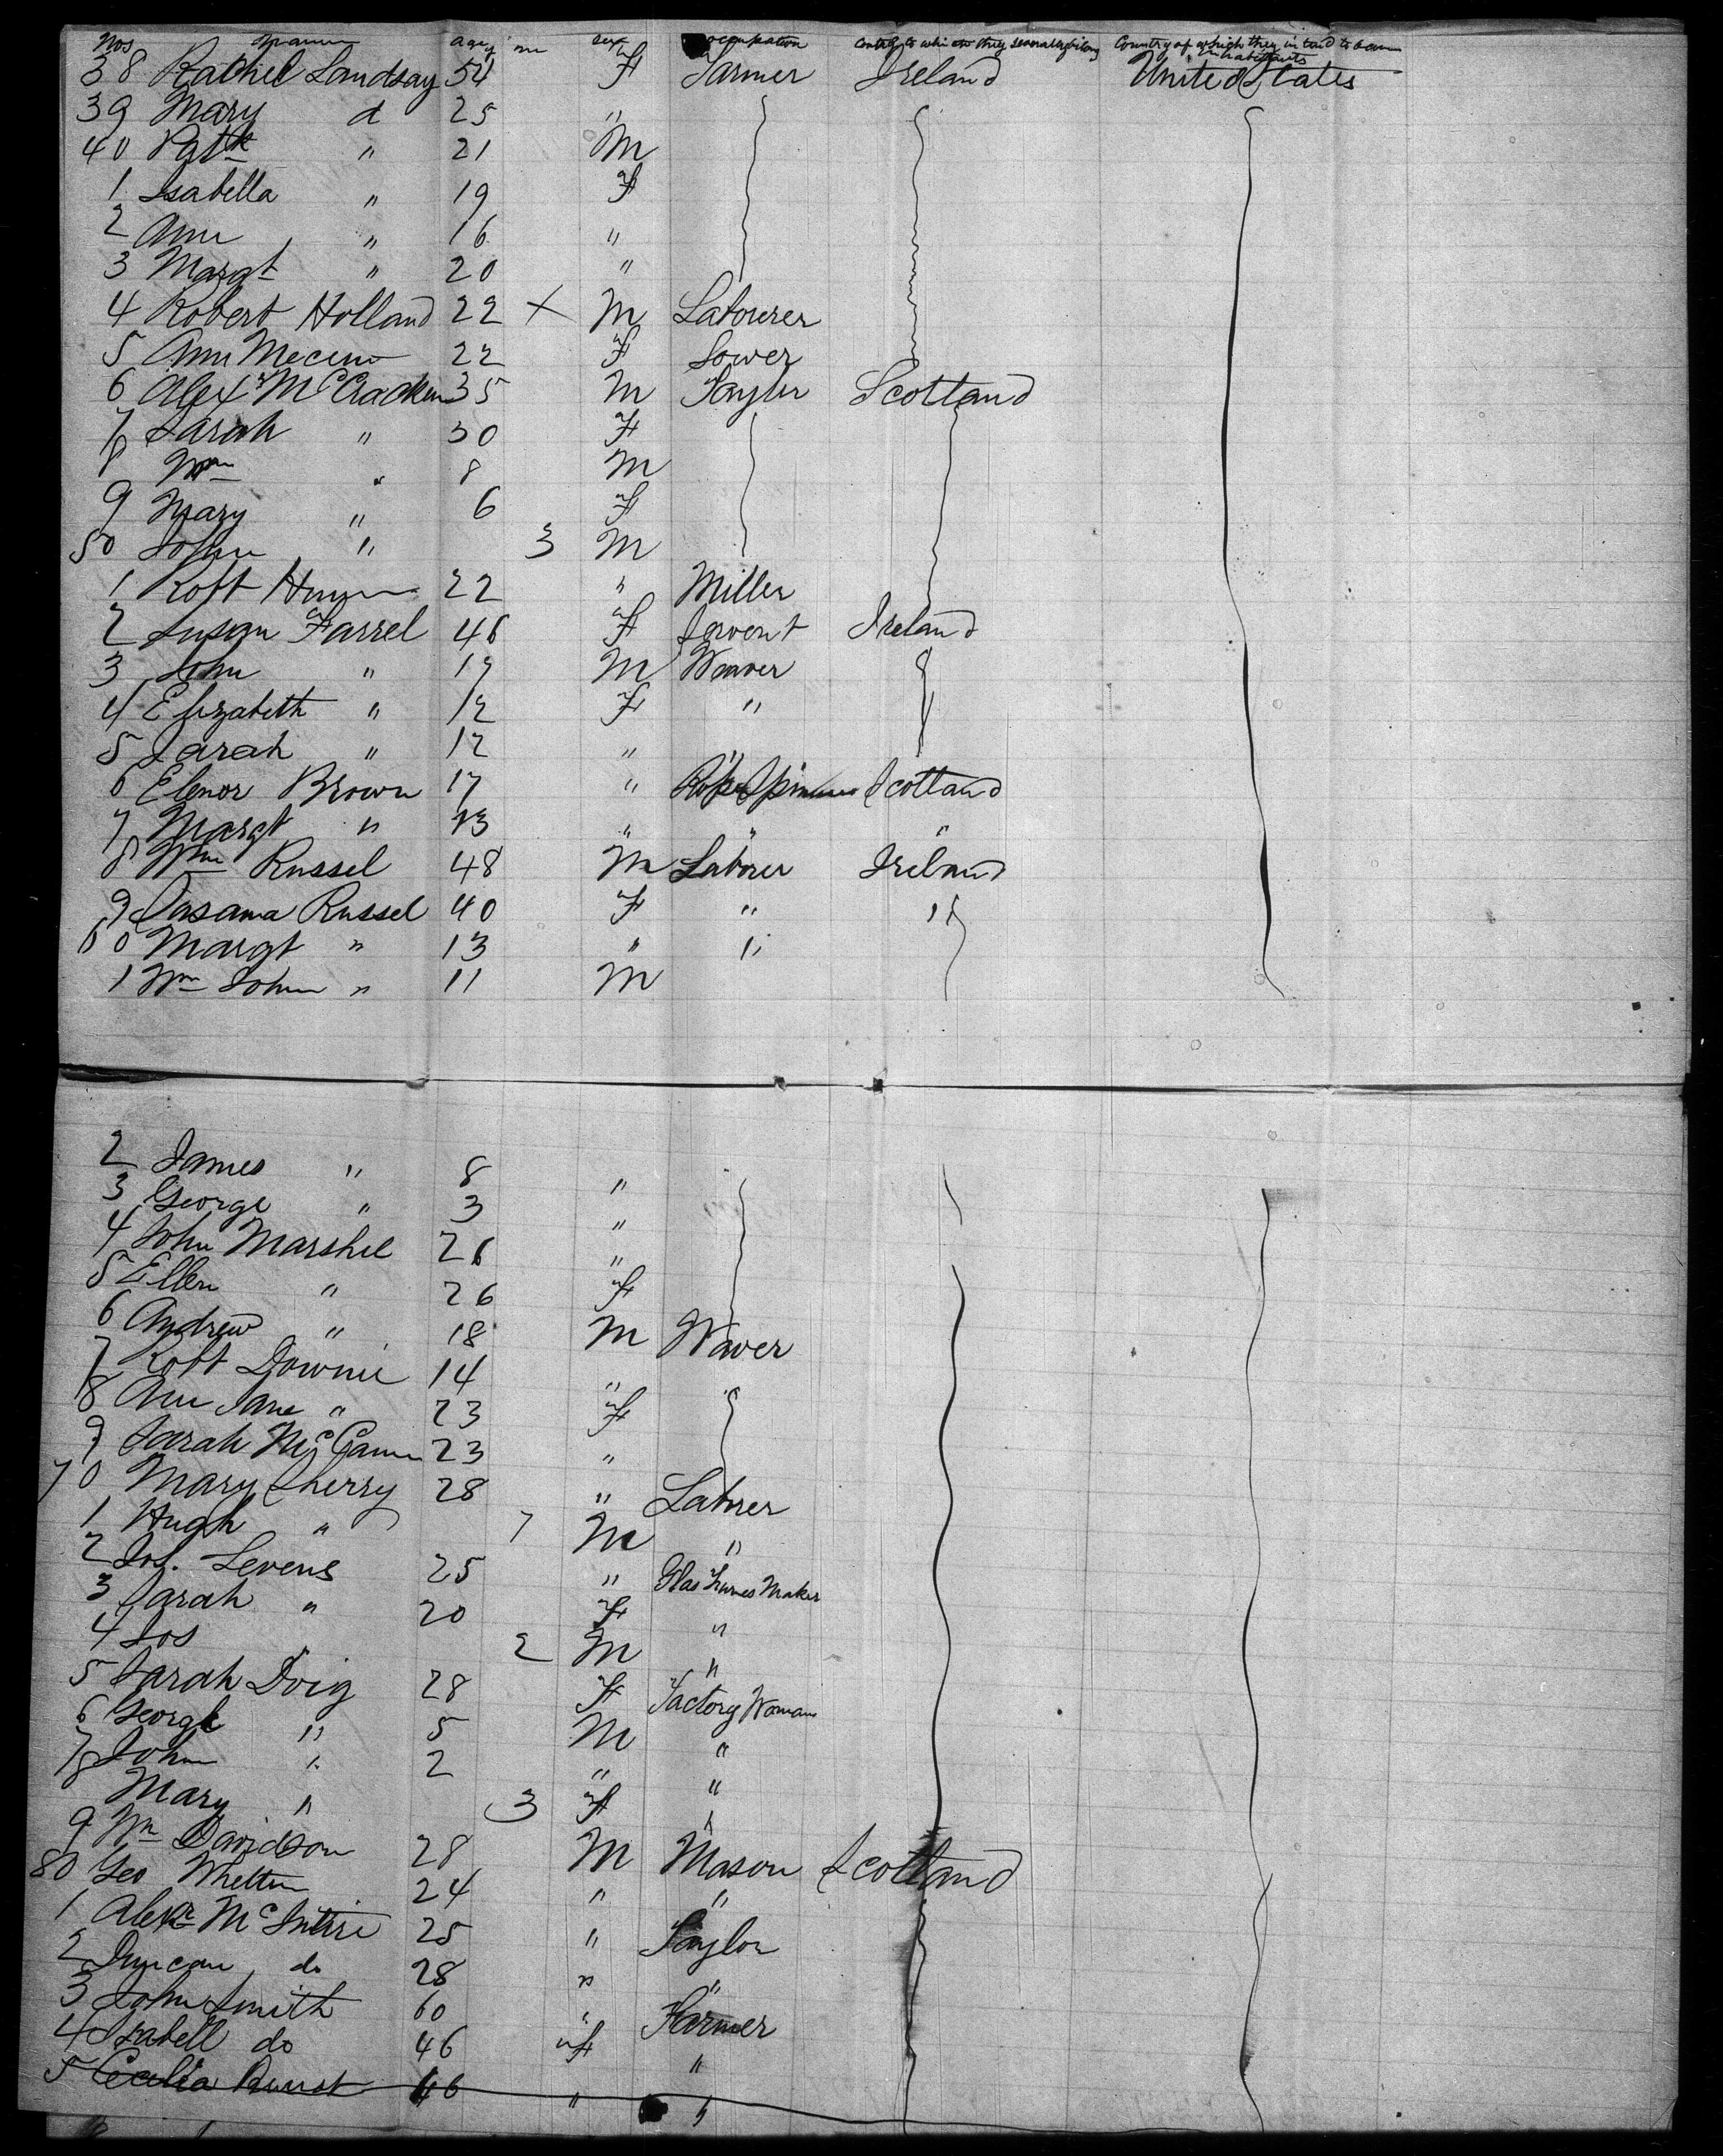 Nos Names age m sex occupation Country to which they severally belong Country of which they intend to become inhabitants
38 Rachel Landsay 54 F Farmer Ireland United States
39 Mary d 25 "
40 Patk " 21 M
1 Isabella " 19 F
2 Ann " 16 "
3 Margt " 20 "
4 Robert Holland 22 X M Labourer
5 Ann 22 F Sower
6 Alexr McCracken 35 M Taylor Scotland
7 Sarah " 30 F
8 Wm " 8 M
9 Mary " 6 F
50 John " 3 M
1 Robt 22 " Miller
2 Susan Farrel 46 F Servent Ireland
3 John " 17 M Weaver
4 Elizabeth " 12 F "
5 Sarah " 12 " "
6 Elenor Brown 17 " Rope Spinner Scotland
7 Margt " 13 " " "
8 Wm Russel 48 M Laborer Ireland
9 Russel 40 F " "
60 Margt " 13 " "
1 Wm John " 11 M
2 James " 8 "
3 George " 3 "
4 John Marshel 26 "
5 Ellen " 26 F
6 Andrew " 18 M Waver
7 Robt Downie 14 "
8 Ann Jane " 23 F
9 Sarah McCann 23 "
70 Mary Sherry 28 " Labrer
1 Hugh " 7 M "
2 Jos. Levens 25 " Glas Maker
3 Sarah " 20 F "
4 Jos " 2 M "
5 Sarah Doig 28 F Factory Woman
6 George " 5 M "
7 John " 2 " "
8 Mary " 3 F "
9 Wm Davidson 28 M Mason Scotland
80 Geo Whelton 24 " "
1 Alexr McIntire 25 " Taylor
2 Duncan do 28 " "
3 John Smith 60 " Farmer
4 Isabell do 46 F "
5 Cecilia 46 " "